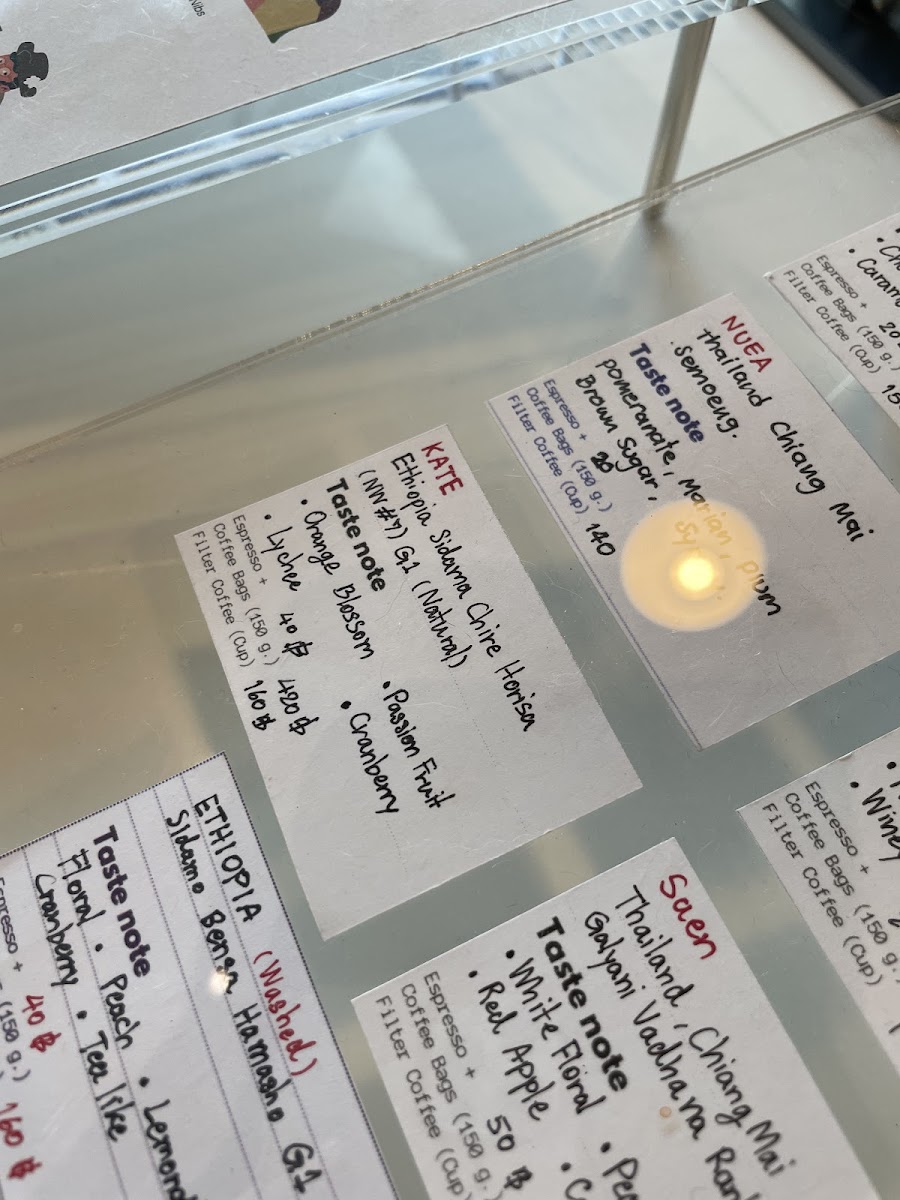 Nibs
Caram
Espresso + 20
Coffee Bags (150 g.)
Filter Coffee (Cup)
NUEA
Thailand Chiang Mai
.Semoeng.
Taste note
pomeranate, Marian, plum
Brown Sugar,
Espresso + 20
Coffee Bags (150 g.)
Filter Coffee (Cup) 140
KATE
Ethiopia Sidama Chire Horisa
(NW#7) G1 (Natural)
Taste note
• Orange Blossom • Passion Fruit
• Lychee • Cranberry
Espresso + 40 ฿
Coffee Bags (150 g.) 420 ฿
Filter Coffee (Cup) 160 ฿
• Winey
Espresso +
Coffee Bags (150 g.)
Filter Coffee (Cup)
Saen
Thailand, Chiang Mai
Galyani Vadhana
Taste note
• White Floral
• Red Apple
Espresso + 50 ฿
Coffee Bags (150 g.
Filter Coffee (Cup)
ETHIOPIA (Washed)
Sidamo Bensa Hamasho G.1
Taste note
Floral • Peach • Lemon
Cranberry • Tea like
Espresso + 40 ฿
(150 g.)
160 ฿